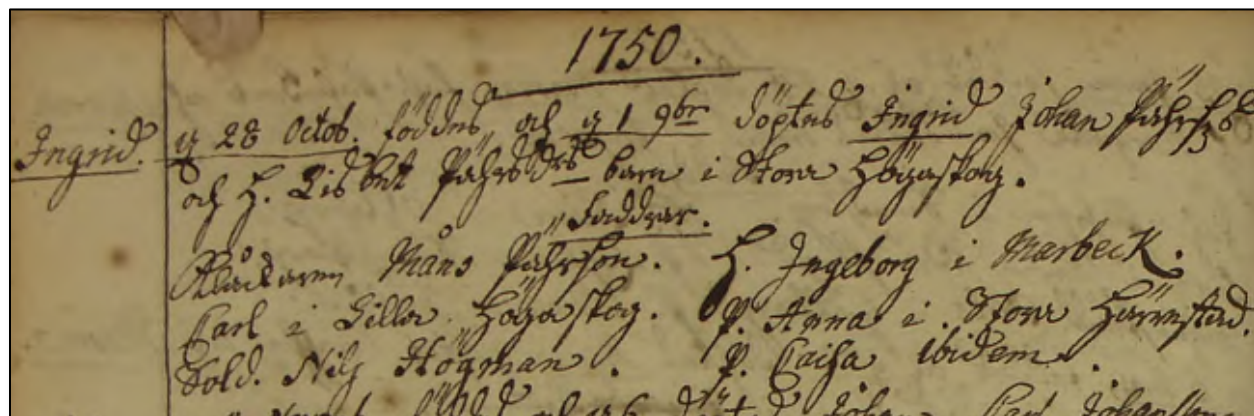 1750.
Ingrid. 28 Octob. föddes och 1 9br döptes Ingrid Johan Pährs
och H. Lisbet Pährsd barn i Stora Högaskog.
Faddrar.
Måns Pährson. H. Ingeborg i Marbeck.
Carl i Lilla Högaskog. P. Anna i Stora Härnstad.
Sold. Nils Högman. P. Caisa ibidem.
döptes Johan Carl